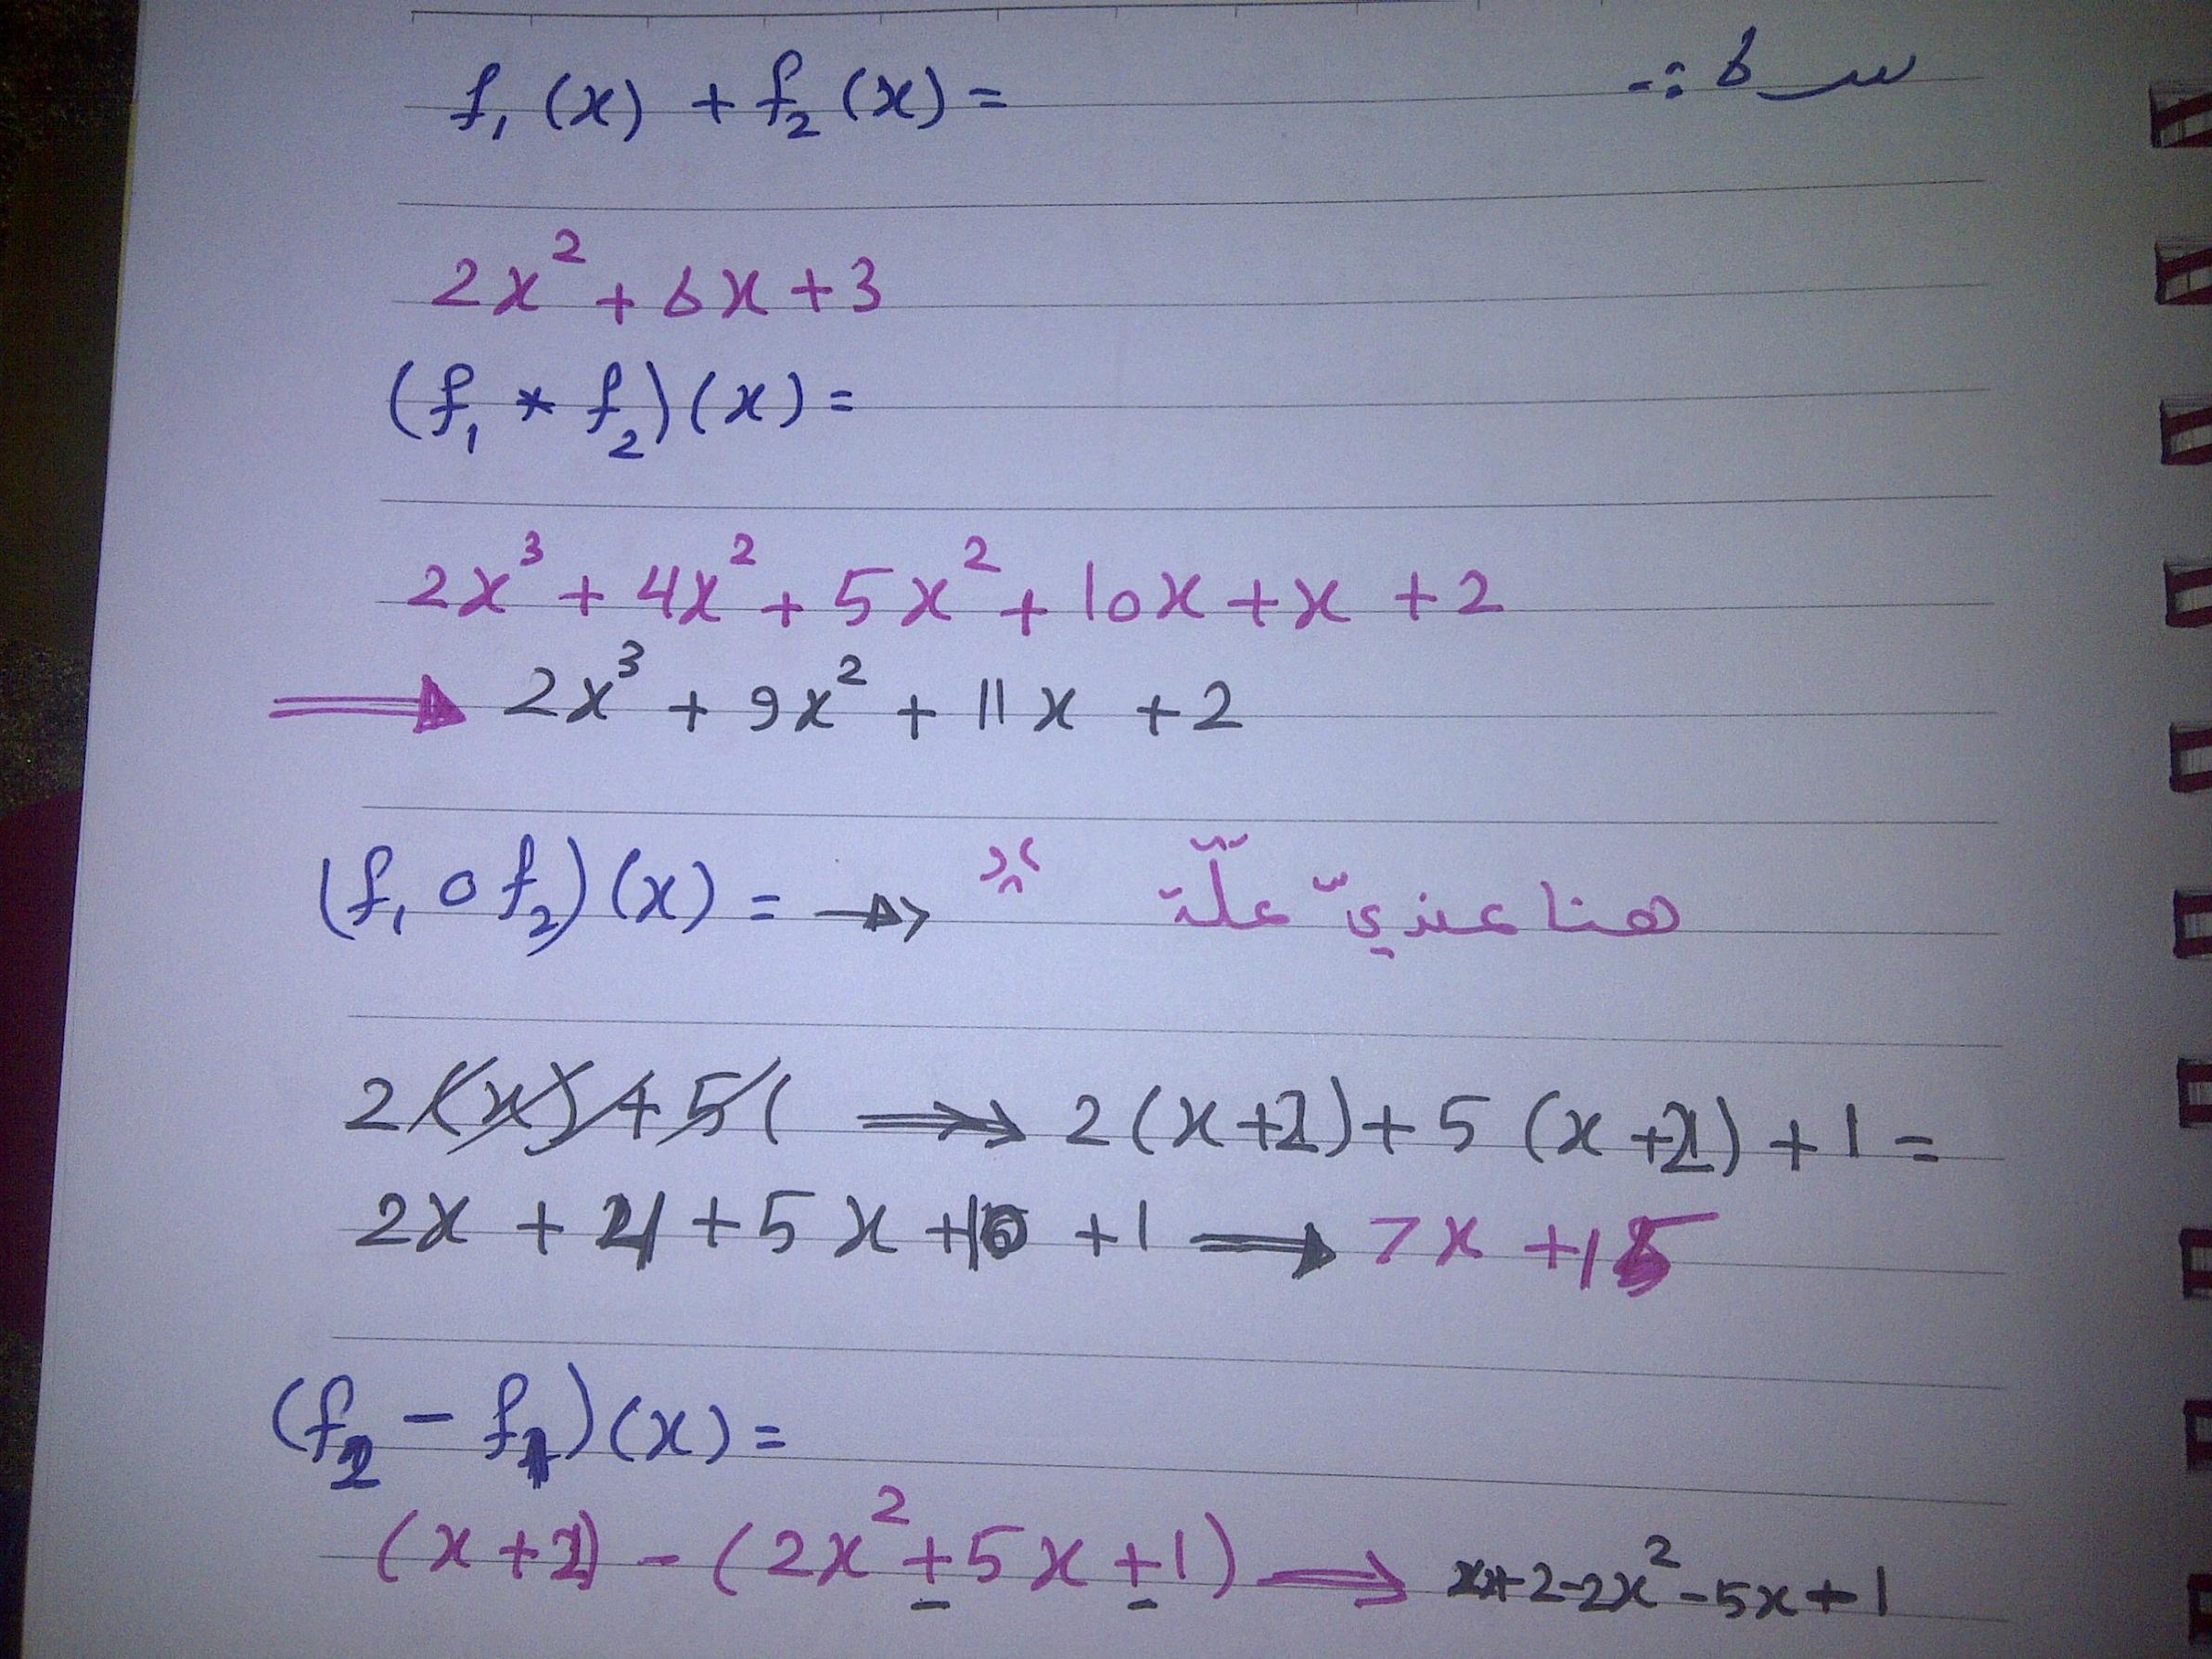 س6 :-
f₁(x) + f₂(x) =
2x² + 6x + 3
(f₁ * f₂)(x) =
2x³ + 4x² + 5x² + 10x + x + 2
⟹ 2x³ + 9x² + 11x + 2
(f₁ o f₂)(x) = → هنا عندي علّة
2(x)+5( ⟹ 2(x+2)+5(x+2)+1=
2x + 4 + 5x + 10 + 1 ⟹ 7x + 15
(f₂ - f₁)(x) =
(x+2) - (2x² + 5x + 1) ⟹ x+2-2x²-5x+1